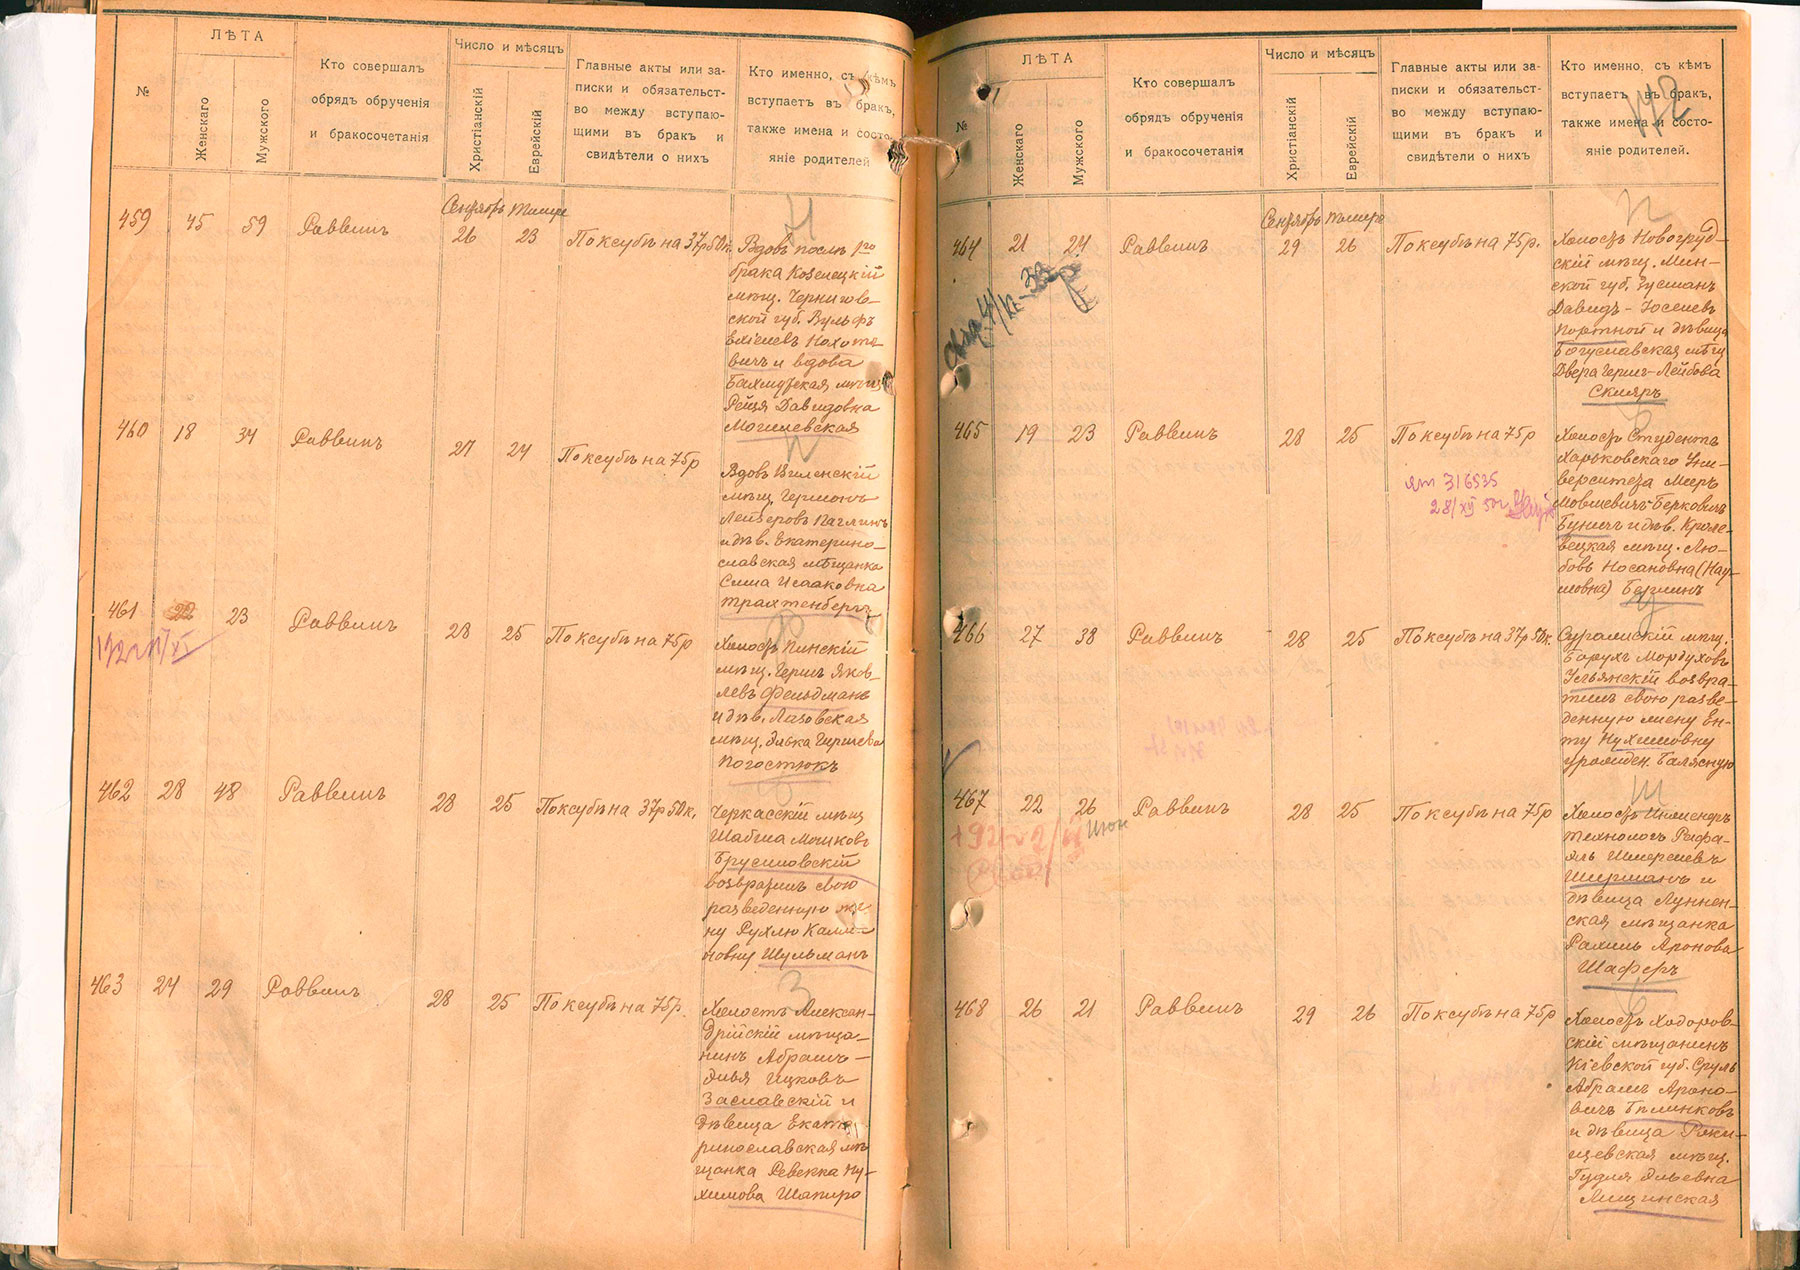 №
ЛѢТА
Женскаго
Мужского
Кто совершалъ
обрядъ обрученія
и бракосочетанія
Число и мѣсяцъ
Христіанскій
Еврейскій
Главные акты или за-
писки и обязательст-
во между вступаю-
щими въ бракъ и
свидѣтели о нихъ
Кто именно, съ кѣмъ
вступаетъ въ бракъ,
также имена и состо-
яніе родителей
Сентябрь Тишре
459 45 59 Раввинъ 26 23 По ксубѣ на 37р 50к.
Н
Вдовъ послѣ 1го
брака Козелецкій
мѣщ. Чернигов-
ской губ. Вульфъ
вичъ и вдова
Бахмутская мѣщ
Рейзя Давидовна
Могилевская
460 18 34 Раввинъ 27 24 По ксубѣ на 75р
Вдовъ Виленскій
мѣщ. Германъ
Лейзеровъ Паглинъ
и дѣв. Екатерино-
славская мѣщанка
Сима Исааковна
Трахтенбергъ
461 22 23 Раввинъ 28 25 По ксубѣ на 75р
Холостъ Пинскій
мѣщ. Гершъ Яков-
левъ Фельдманъ
и дѣв. Лазовская
мѣщ. Элька Гиршева
Погостюкъ
462 28 48 Раввинъ 28 25 По ксубѣ на 37р 50к.
Черкасскій мѣщ
Шабша Мошковъ
Брусиловскій
возвратилъ свою
разведенную же-
ну Рухлю Калма-
новну Шульманъ
463 24 29 Раввинъ 28 25 По ксубѣ на 75р.
З
Холостъ Алексан-
дрійскій мѣща-
нинъ Абрамъ-
Элья Ицковъ
Заславскій и
дѣвица Екате-
ринославская мѣ-
щанка Ревекка Ну-
химова Шапиро
№
ЛѢТА
Женскаго
Мужского
Кто совершалъ
обрядъ обрученія
и бракосочетанія
Число и мѣсяцъ
Христіанскій
Еврейскій
Главные акты или за-
писки и обязательст-
во между вступаю-
щими въ бракъ и
свидѣтели о нихъ
Кто именно, съ кѣмъ
вступаетъ въ бракъ,
также имена и состо-
яніе родителей.
142
Сентябрь Тишре
464 21 24 Раввинъ 29 26 По ксубѣ на 75р.
П
Холостъ Новогруд-
скій мѣщ. Мин-
ской губ. Зусманъ
Давидъ-Іоселевъ
Портной и дѣвица
Богуславская мѣщ
Двера Герш-Лейбова
Скляръ
465 19 23 Раввинъ 28 25 По ксубѣ на 75р
ят 316535
28/XII 50г
Холостъ Студентъ
Харьковскаго Уни-
верситета Мееръ
Мовшевичъ-Берковичъ
Буничъ и дѣв. Кроле-
вецкая мѣщ. Лю-
бовь Носановна (Нау-
мовна) Берлинъ
466 27 38 Раввинъ 28 25 По ксубѣ на 37р 50к.
У
Суражскій мѣщ.
Борухъ Мордуховъ
Ульянскій возвра-
тилъ свою разве-
денную жену Ен-
ту Нухимовну
урожден. Балясную
467 22 26 Раввинъ 28 25 По ксубѣ на 75р
Ш
Холостъ Инженеръ
технологъ Рафа-
элъ Шмерелевъ
Ширманъ и
дѣвица Луннен-
ская мѣщанка
Рахиль Аронова
Шаферъ
468 26 21 Раввинъ 29 26 По ксубѣ на 75р
Б
Холостъ Ходоров-
скій мѣщанинъ
Кіевской губ. Сруль
Абрамъ Ароно-
вичъ Билинковъ
и дѣвица Раки-
цевская мѣщ.
Гудля Эльевна
Лищинская